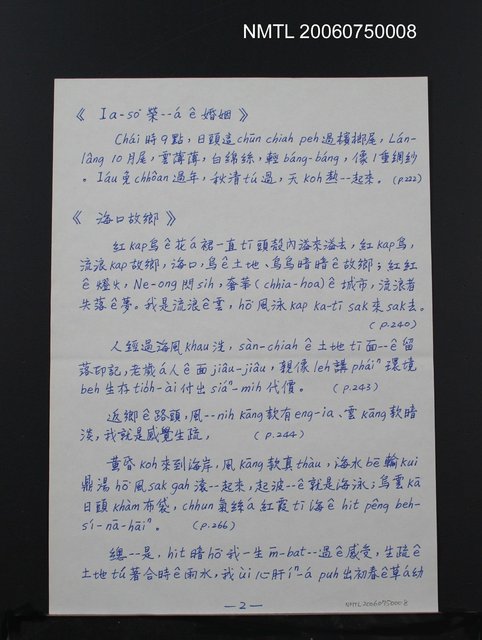 NMTL 20060750008
《 Ia-so͘ 榮--á ê 婚姻 》
Chái 時 9 點, 日頭這 chūn chiah peh 過檳榔尾, Lán-
lâng 10 月尾, 雲薄薄, 白綿絲, 輕 báng-báng, 像 1 重綢紗
。Iáu 免 chhôan 過年, 秋清 tú 過, 天 koh 熱--起來。(p.222)
《 海口故鄉 》
紅 kap 烏 ê 花 á 裙一直 tī 頭殼內溢來溢去, 紅 kap 烏,
流浪 kap 故鄉, 海口, 烏 ê 土地、烏烏暗暗 ê 故鄉; 紅紅
ê 燈火, Ne-ong 閃 sih, 奢華 (chhia-hoa) ê 城市, 流浪者
失落 ê 夢。我是流浪 ê 雲, hō͘ 風泳 kap ka-tī sak 來 sak 去。
(p.240)
人經過海風 khau 洗, sàn-chiah ê 土地 tī 面--ê 留
落印記, 老歲 á 人 ê 面 jiâu-jiâu, 親像 leh 講 pháiⁿ 環境
beh 生存 tio̍h-ài 付出 siáⁿ-mih 代價。 (p.243)
返鄉 ê 路頭, 風--nih kāng 款有 eng-ia、雲 kāng 款暗
淡, 我就是感覺生疏, (p.244)
黃昏 koh 來到海岸, 風 kāng 款真 thàu, 海水 bē 輸 kui
鼎湯 hō͘ 風 sak gah 滾--起來, 起波--ê 就是海泳; 烏雲 kā
日頭 khàm 布袋, chhun 氣絲 á 紅霞 tī 海 ê hit pêng beh-
sí-nā-hāiⁿ。 (p.266)
總--是, hit 暗 hō͘ 我一生 m̄-bat--過 ê 感受, 生疏 ê
土地 tú 著合時 ê 雨水, 我 ùi 心肝 íⁿ-á puh 出初春 ê 草 á 幼
— 2 —
NMTL 20060750008